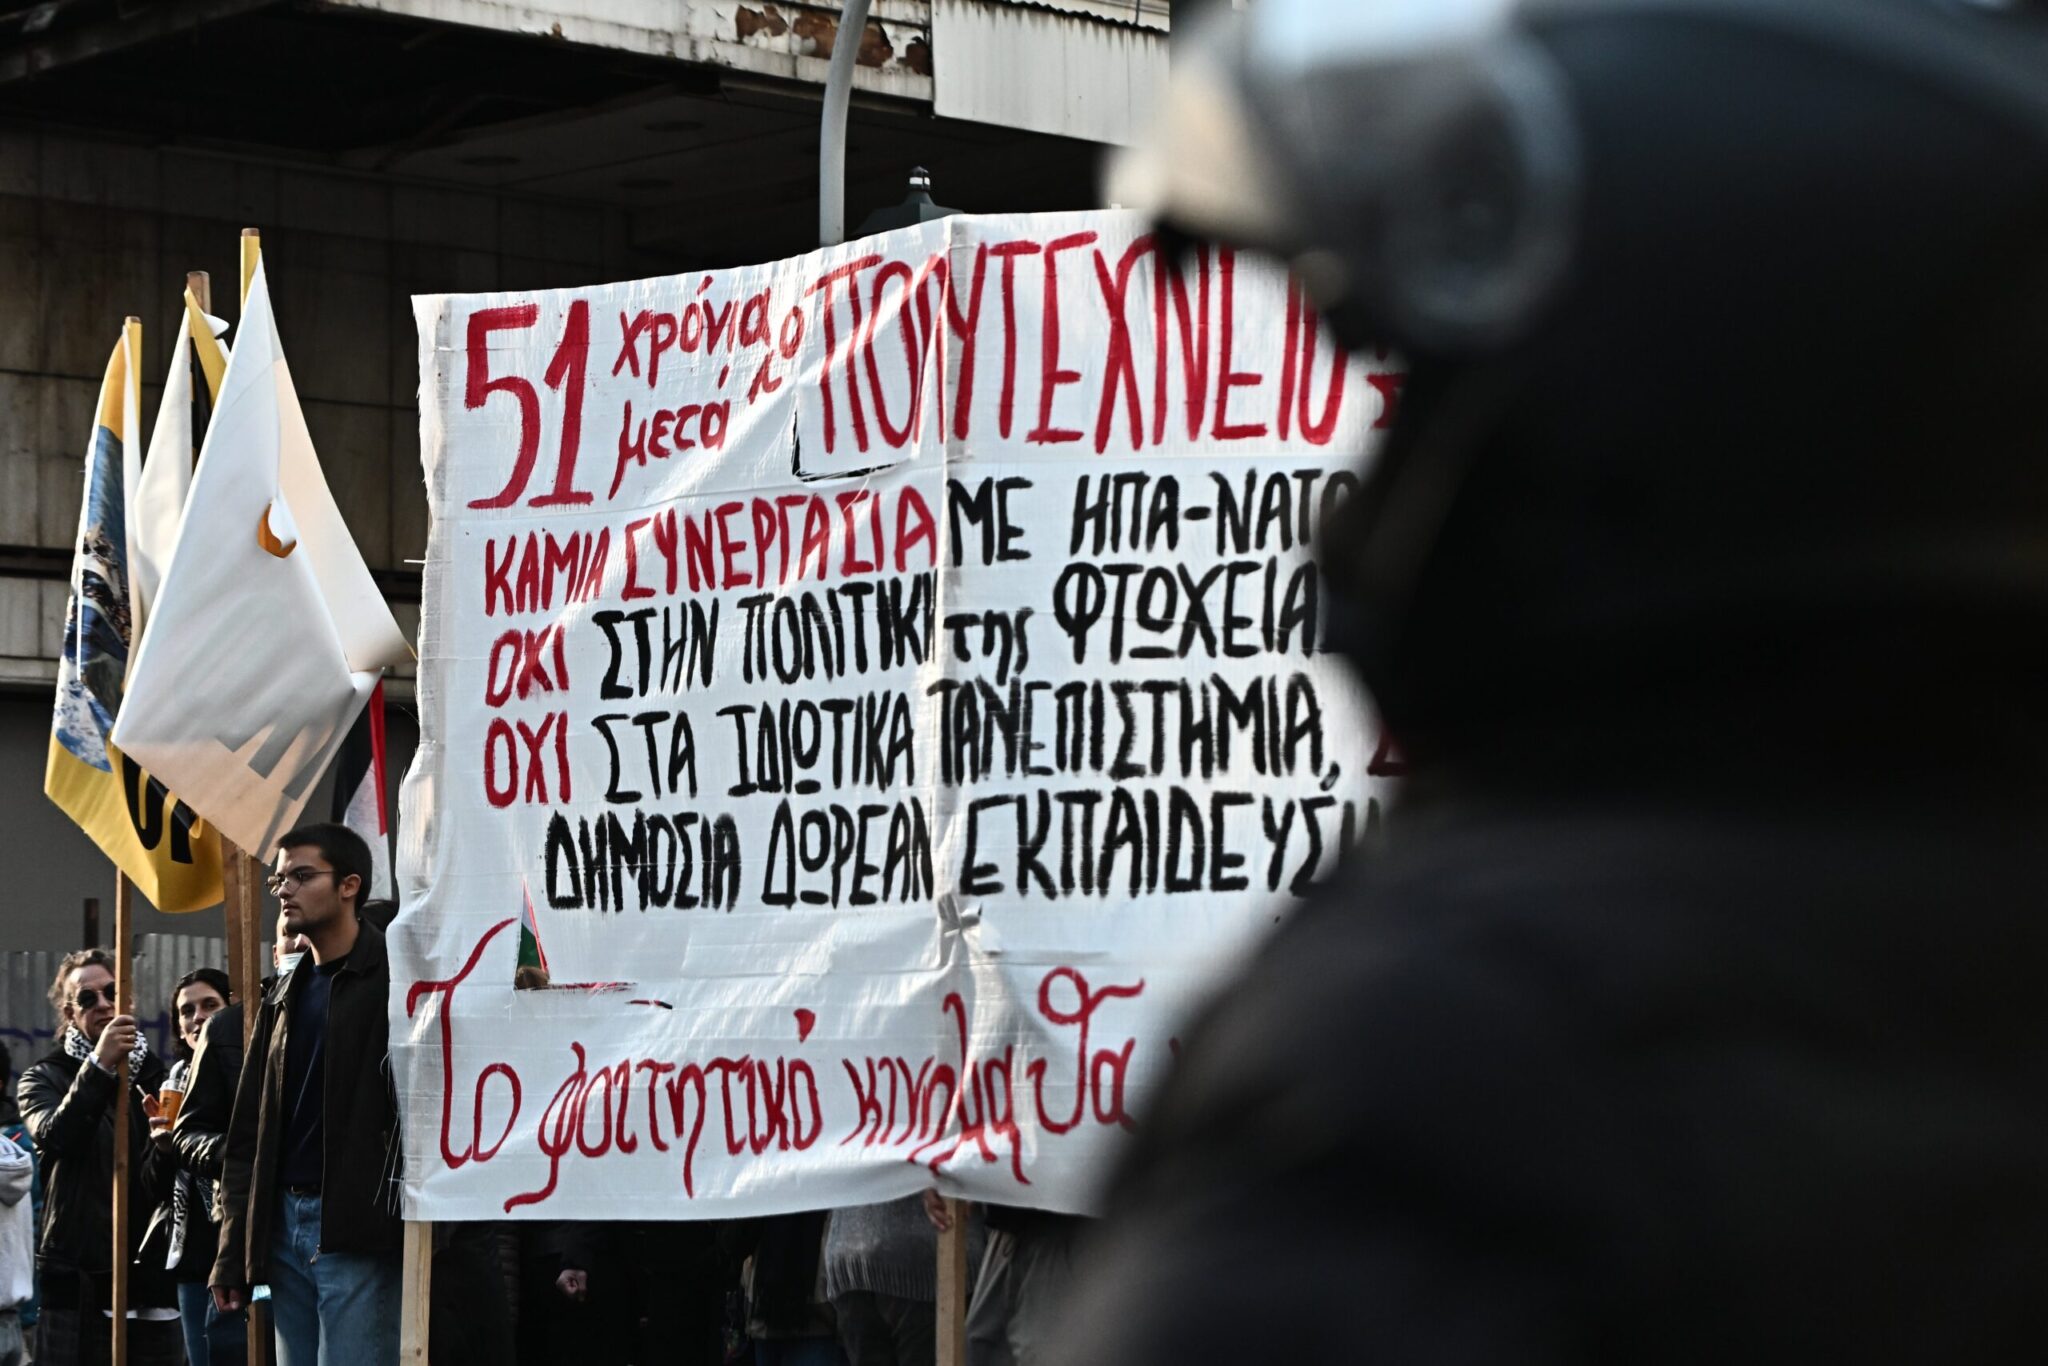 51 χρόνια μετά το ΠΟΛΥΤΕΧΝΕΙΟ
ΚΑΜΙΑ ΣΥΝΕΡΓΑΣΙΑ ΜΕ ΗΠΑ-ΝΑΤΟ
ΟΧΙ ΣΤΗΝ ΠΟΛΙΤΙΚΗ της ΦΤΩΧΕΙΑΣ
ΟΧΙ ΣΤΑ ΙΔΙΩΤΙΚΑ ΠΑΝΕΠΙΣΤΗΜΙΑ,
ΔΗΜΟΣΙΑ ΔΩΡΕΑΝ ΕΚΠΑΙΔΕΥΣΗ
Το φοιτητικό κίνημα θα